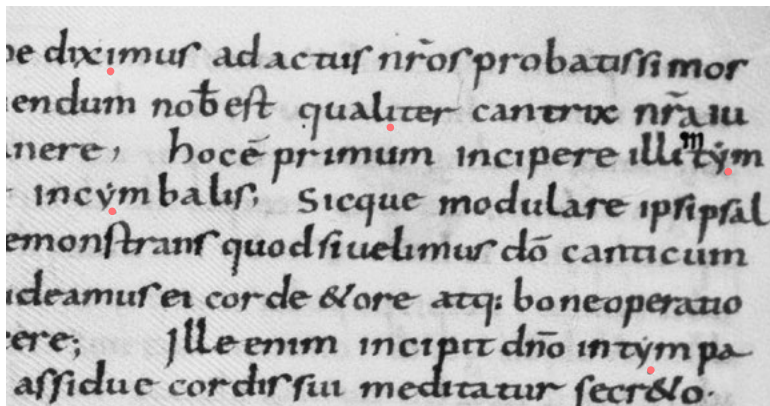 ne diximus ad actus nr̄os probatissimos
endum nob̄ est qualiter cantrix nr̄a iu
nere, hocē primum incipere illi ᵐtẏm
incẏmbalis; Sicque modulare ipsi psal
emonstrans quod si uelimus dō canticum
ideamus ei corde &ore atq: bone operatio
cere; Ille enim incipit dn̄o in tẏmpa
assidue cordis sui meditatur secr&o·